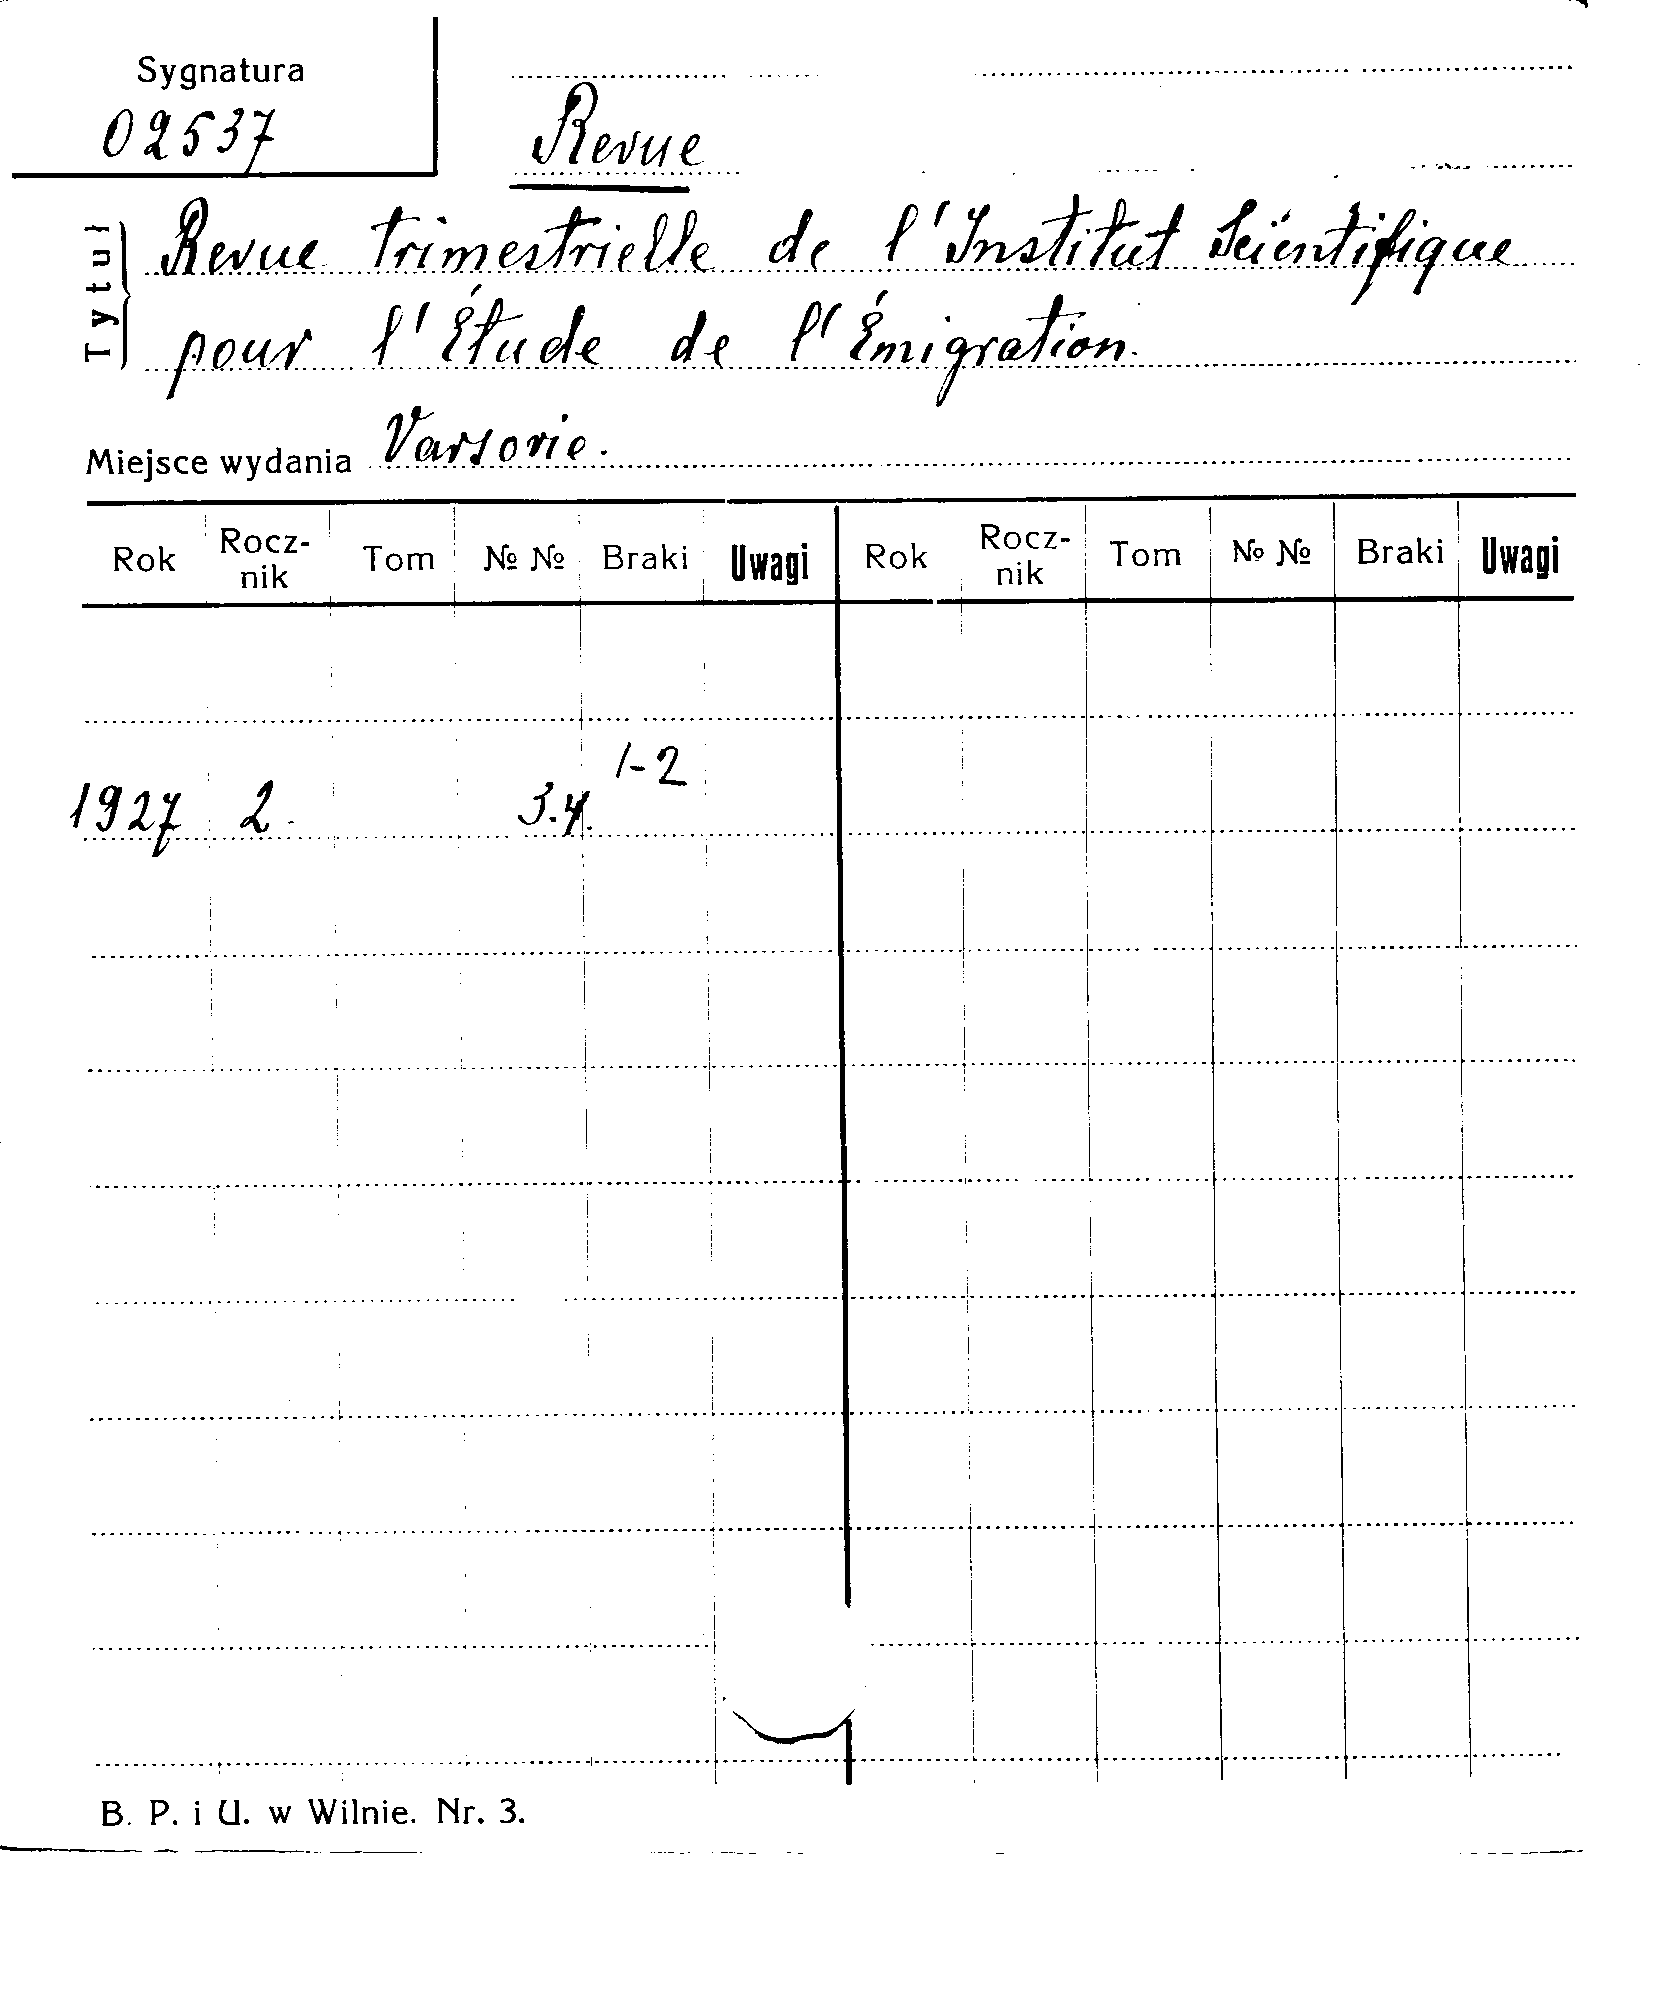 Sygnatura
02537
Revue
Tytuł
Revue trimestrielle de l'Institut Scientifique
pour l'Étude de l'Émigration.
Miejsce wydania Varsovie.
Rok Rocz-nik Tom № № Braki Uwagi Rok Rocz-nik Tom № № Braki Uwagi
1927 2. 3.4. 1-2
B. P. i U. w Wilnie. Nr. 3.